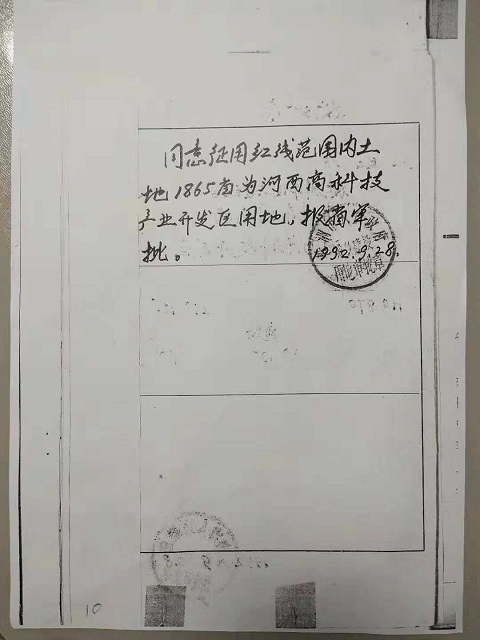 同意征用红线范围内土
地1865亩为河西高科技
产业开发区用地，报省审
批。
1992.9.28.
10